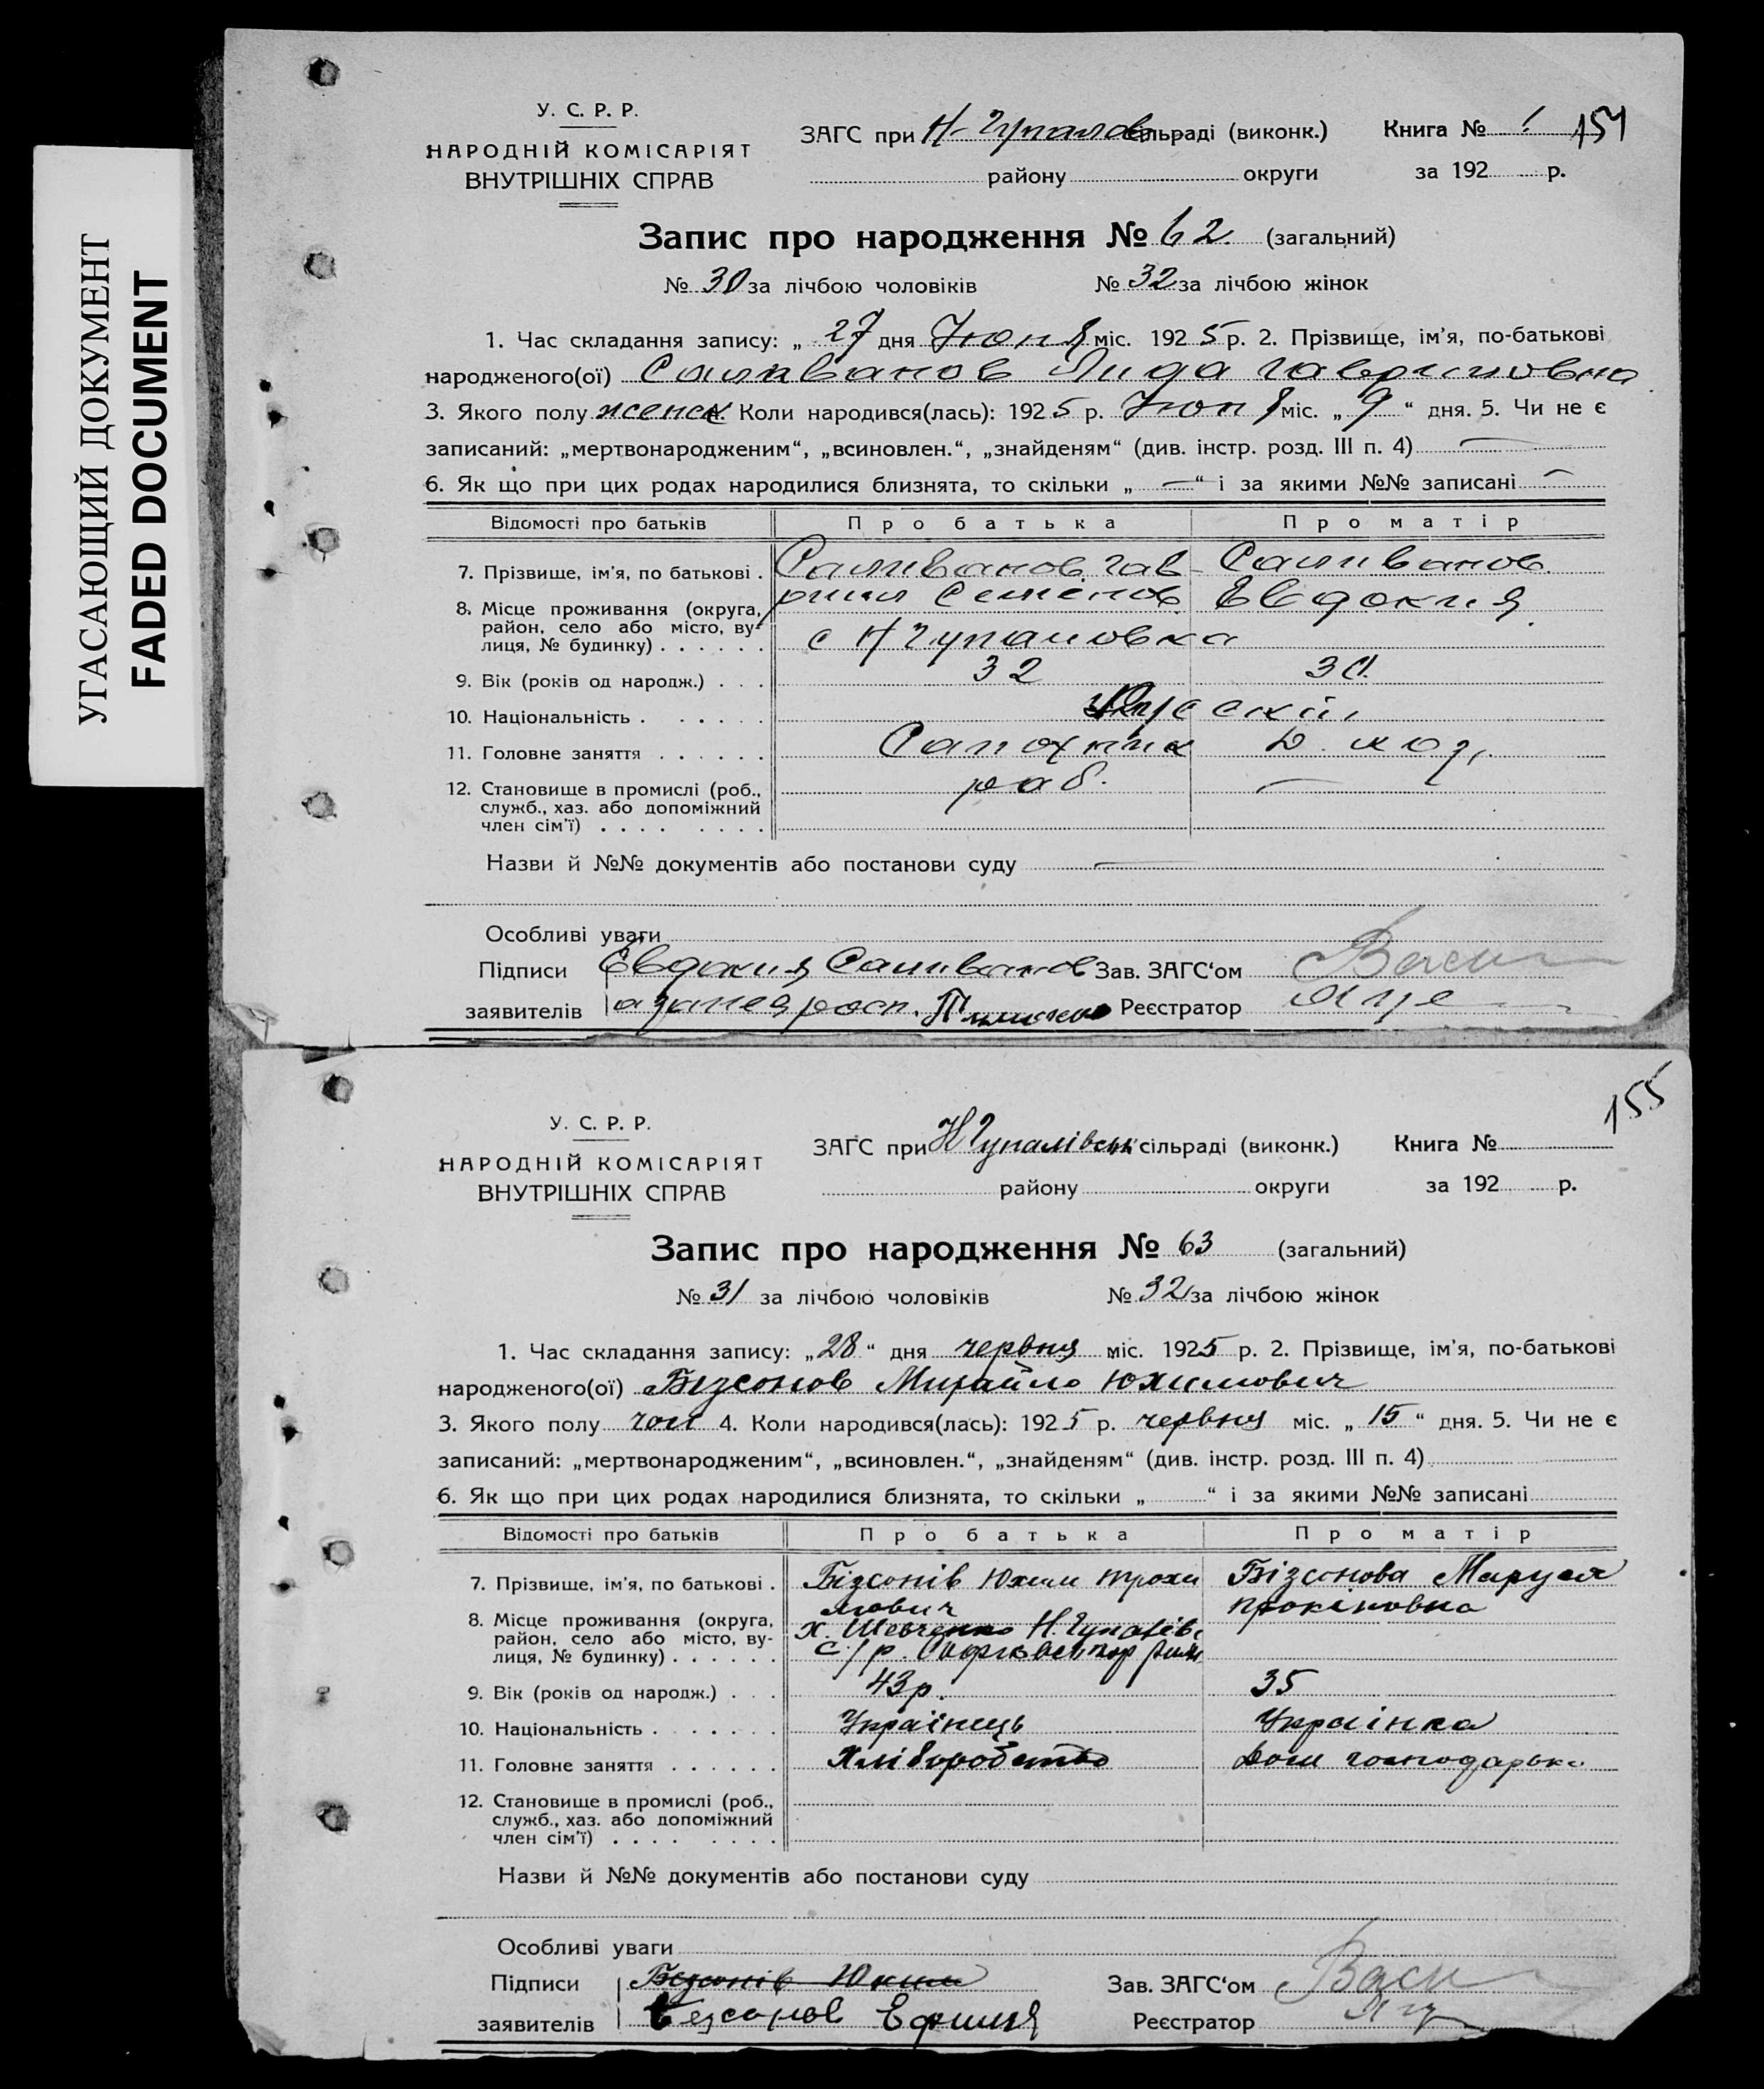 УГАСАЮЩИЙ ДОКУМЕНТ
FADED DOCUMENT
154
У. С. Р. Р.
НАРОДНІЙ КОМІСАРІЯТ
ВНУТРІШНІХ СПРАВ
ЗАГС при Н-Гупалов сільраді (виконк.) Книга №
району округи за 192 р.
Запис про народження № 62. (загальний)
№ 30 за лічбою чоловіків № 32 за лічбою жінок
1. Час складання запису: „ 27 дня Июня міс. 1925 р. 2. Прізвище, ім'я, по-батькові
народженого(ої) Саливанов Лида Гавриловна
3. Якого полу женск Коли народився(лась): 1925 р. Июня міс. „ 9 “ дня. 5. Чи не є
записаний: „мертвонародженим“, „всиновлен.“, „знайденям“ (див. інстр. розд. III п. 4) —
6. Як що при цих родах народилися близнята, то скільки „ — “ і за якими №№ записані —
Відомості про батьків Про батька Про матір
7. Прізвище, ім'я, по батькові . Саливанов Гав- Саливанов
рила Семенов Евдокия
8. Місце проживання (округа,
район, село або місто, ву-
лиця, № будинку) . . . . . . с Н Гупаловка
9. Вік (років од народж.) . . . 32 30
10. Національність . . . . . . Русский
11. Головне заняття . . . . . . Сапожник Д. хоз,
12. Становище в промислі (роб.,
служб., хаз. або допоміжний
член сім'ї) . . . . . . . . раб. —
Назви й №№ документів або постанови суду —
Особливі уваги
Підписи Евдокия Саливанов Зав. ЗАГС'ом Васи
заявителів а за нея росп. Реєстратор
155
У. С. Р. Р.
НАРОДНІЙ КОМІСАРІЯТ
ВНУТРІШНІХ СПРАВ
ЗАГС при Н Гупалівськ сільраді (виконк.) Книга №
району округи за 192 р.
Запис про народження № 63 (загальний)
№ 31 за лічбою чоловіків № 32 за лічбою жінок
1. Час складання запису: „28“ дня червня міс. 1925 р. 2. Прізвище, ім'я, по-батькові
народженого(ої) Бізсонов Михайло Юхимович
3. Якого полу чол 4. Коли народився(лась): 1925 р. червня міс. „ 15 “ дня. 5. Чи не є
записаний: „мертвонародженим“, „всиновлен.“, „знайденям“ (див. інстр. розд. III п. 4)
6. Як що при цих родах народилися близнята, то скільки „ “ і за якими №№ записані
Відомості про батьків Про батька Про матір
7. Прізвище, ім'я, по батькові . Бізсонів Юхим Трохи Бізсонова Маруся
мович Прокіповна
8. Місце проживання (округа,
район, село або місто, ву-
лиця, № будинку) . . . . . . х. Шевченко Н. Гупалівс
с/р.
9. Вік (років од народж.) . . . 43 р. 35
10. Національність . . . . . . Українець Українка
11. Головне заняття . . . . . . Хліборобство Дом господарька
12. Становище в промислі (роб.,
служб., хаз. або допоміжний
член сім'ї) . . . . . . . .
Назви й №№ документів або постанови суду
Особливі уваги
Підписи Бізсонів Юхим Зав. ЗАГС'ом Васи
заявителів Безсонов Ефимя Реєстратор